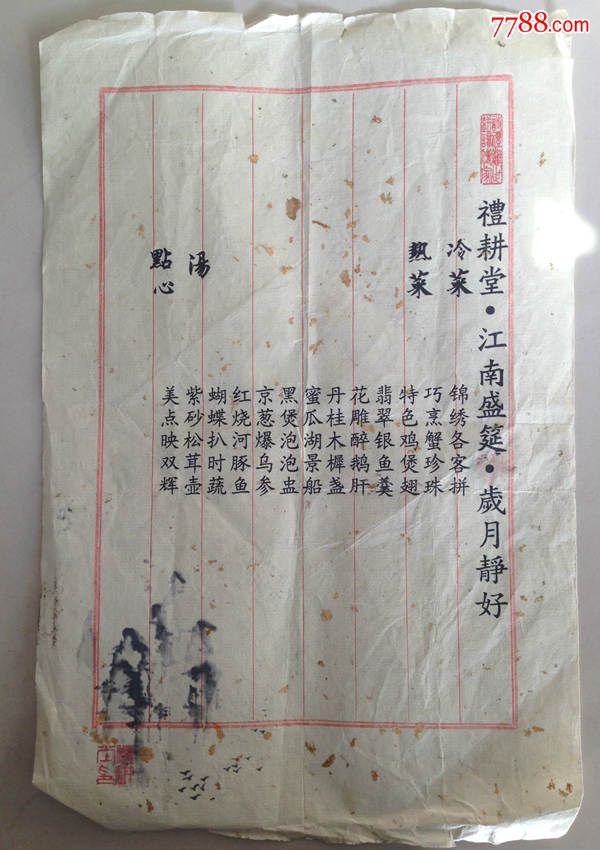 7788.com
禮耕堂·江南盛筵·歲月靜好
冷菜
錦绣各客拼
熱菜
巧烹蟹珍珠
特色鸡煲翅
翡翠银鱼羹
花雕醉鹅肝
丹桂木樨盏
蜜瓜湖景船
黑煲泡泡盅
京葱爆乌参
红烧河豚鱼
蝴蝶扒时蔬
湯
紫砂松茸壶
點心
美点映双辉